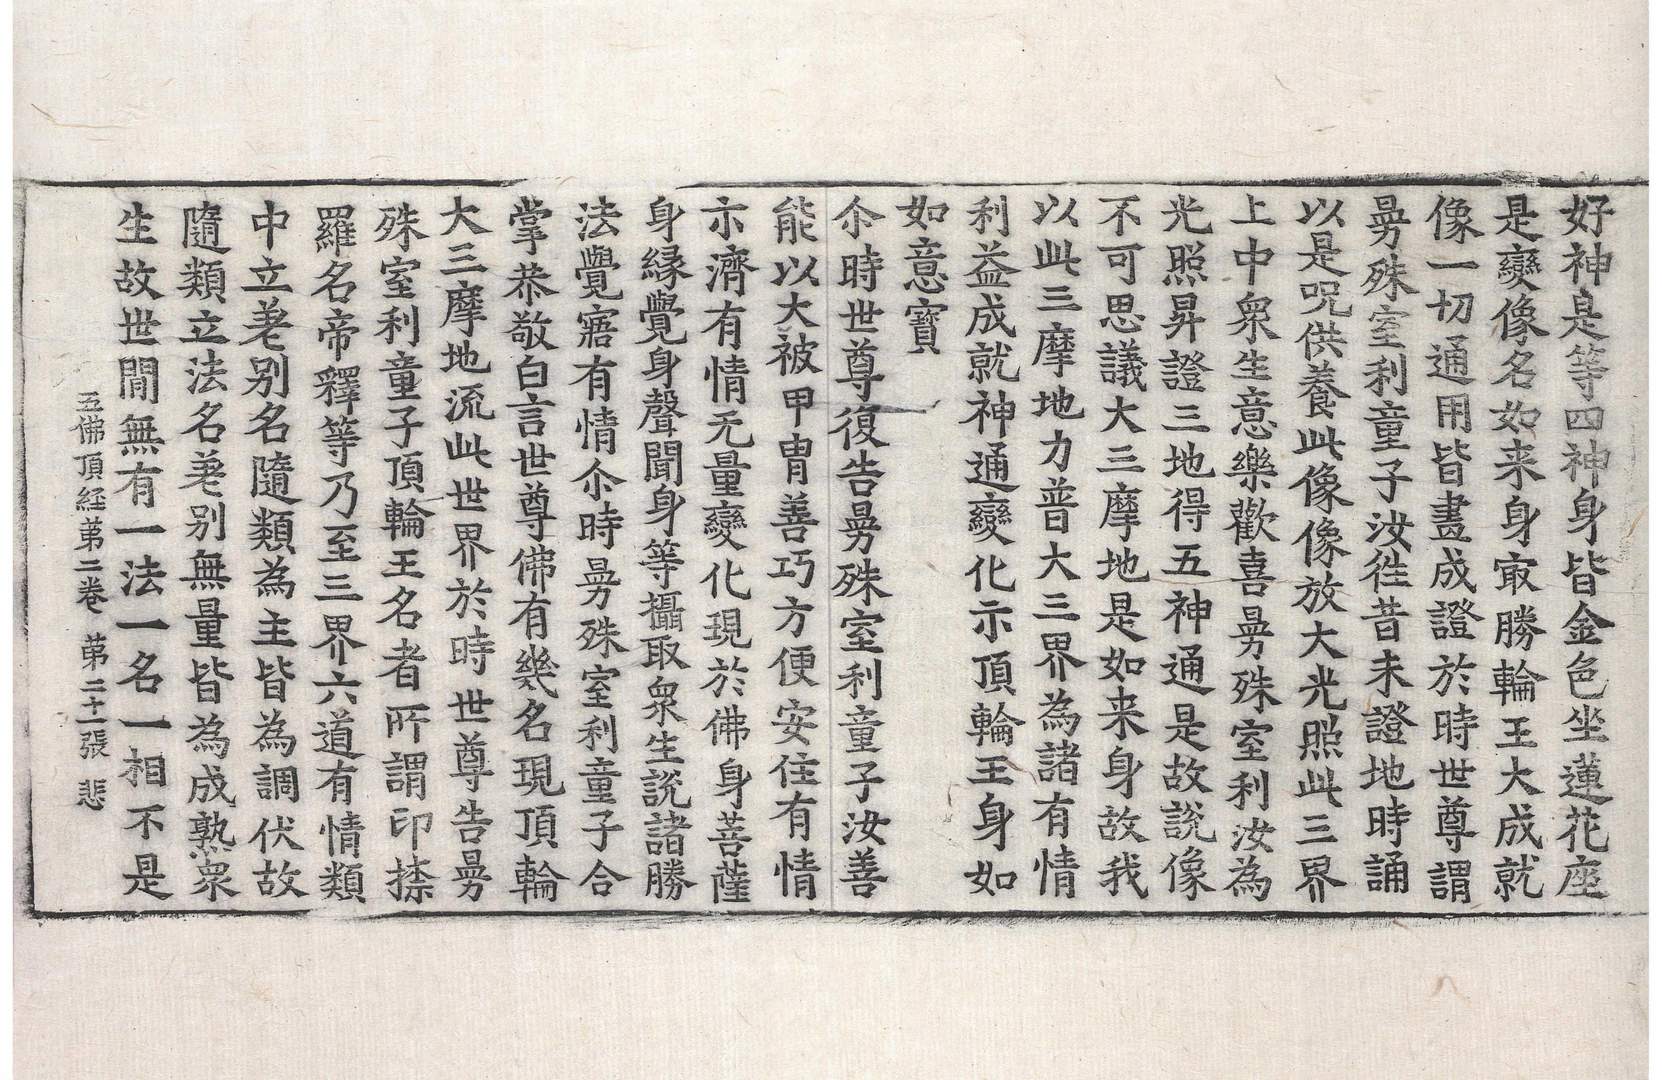 好神是等四神身皆金色坐蓮花座
是變像名如来身㝡勝輪王大成就
像一切通用皆盡成證於時世尊謂
曼殊室利童子汝往昔未證地時誦
以是呪供養此像像放大光照此三界
上中衆生意樂歡喜曼殊室利汝為
光照昇證三地得五神通是故說像
不可思議大三摩地是如来身故我
以此三摩地力普大三界為諸有情
利益成就神通變化示頂輪王身如
如意寶
尒時世尊復告曼殊室利童子汝善
能以大被甲冑善巧方便安住有情
示濟有情无量變化現於佛身菩薩
身緣覺身聲聞身等攝取衆生說諸勝
法覺寤有情尒時曼殊室利童子合
掌恭敬白言世尊佛有幾名現頂輪
大三摩地流此世界於時世尊告曼
殊室利童子頂輪王名者所謂印捺
羅名帝釋等乃至三界六道有情類
中立差別名隨類為主皆為調伏故
隨類立法名差別無量皆為成熟衆
生故世間無有一法一名一相不是
五佛頂経第二卷 第二十二張 悲